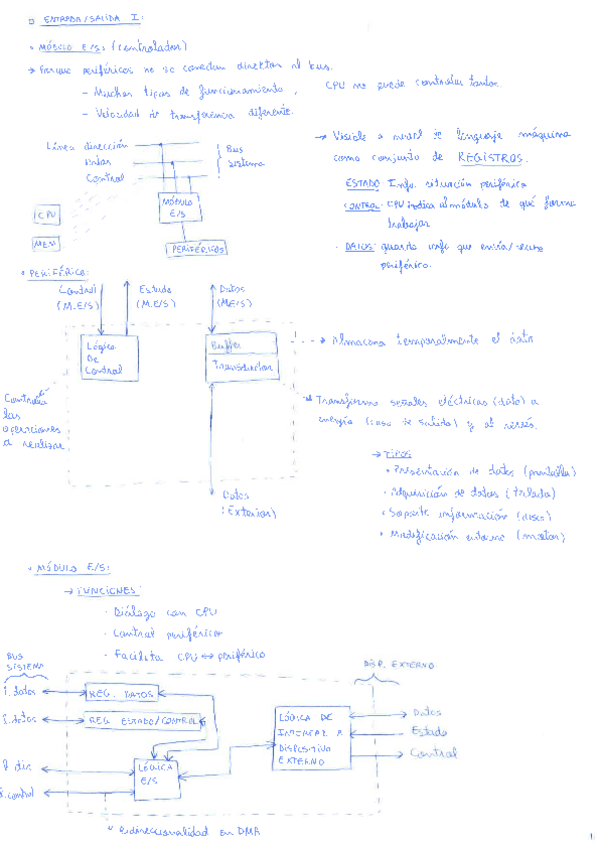 ENTRADA/SALIDA I:
MÓDULO E/S: (controlador)
→ Porque periféricos no se conectan direktan al bus.
- Muchos tipos de funcionamiento, CPU no puede controlar tantos.
- Velocidad de transferencia diferente.
Línea dirección
Datos
Control
Bus
sistema
CPU
MEM
MÓDULO
E/S
PERIFÉRICOS
→ Visible a nivel de lenguaje máquina
como conjunto de REGISTROS.
ESTADO: Info. situación periférico
CONTROL: CPU indica al módulo de qué forma
trabajar
· DATOS: guarda info que envía/
periférico.
· PERIFÉRICO:
Control
(M.E/S)
Estado
(M.E/S)
Datos
(M.E/S)
Lógica
De
Control
Buffer
Transductor
→ Almacena temporalmente el dato
Controla
las
operaciones
a realizar
Transforma señales eléctricas (dato) a
energía (caso de salida) y al revés.
→ TIPOS
· Presentación de datos (pantalla)
· Adquisición de datos (teclado)
· Soporte información (discos)
· Modificación entorno (motor)
Datos
(Exterior)
· MÓDULO E/S:
→ FUNCIONES:
· Diálogo con CPU
· Control periférico
· Facilita CPU ↔ periférico
BUS
SISTEMA
DISP. EXTERNO
l. datos
REG. DATOS
l. datos
REG ESTADO/CONTROL
l. dir
l. control
LÓGICA
E/S
LÓGICA DE
INTERFAZ A
DISPOSITIVO
EXTERNO
Datos
Estado
Control
Bidireccionalidad en DMA
1